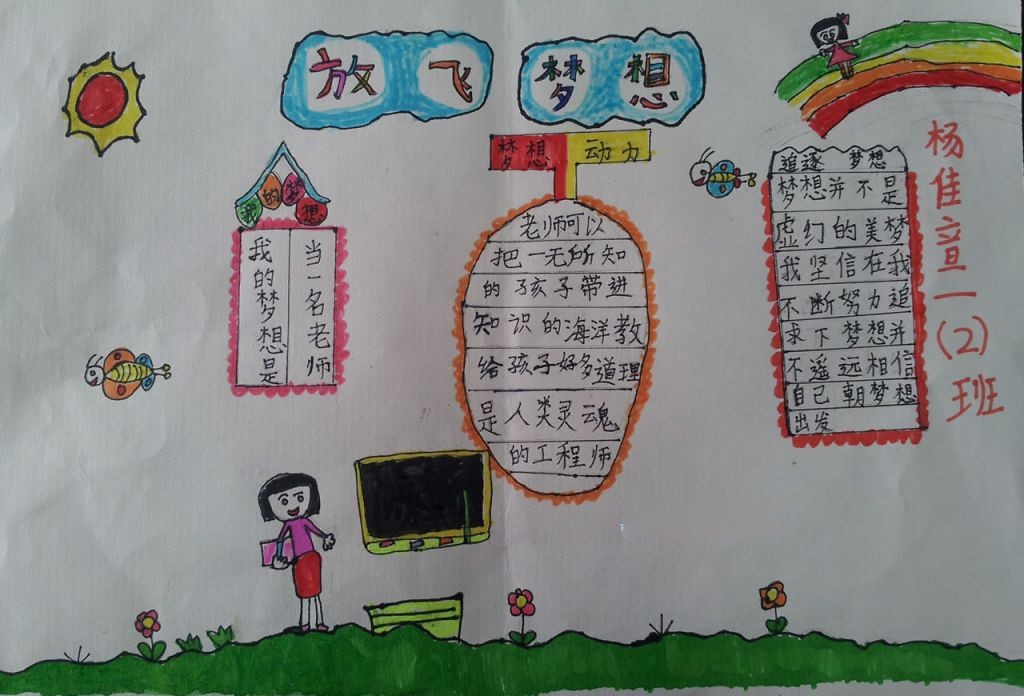 放飞 梦想
我的梦想
我的梦想是
当一名老师
梦想 动力
老师可以
把一无所知
的孩子带进
知识的海洋教
给孩子好多道理
是人类灵魂
的工程师
追逐 梦想
梦想并不是
虚幻的美梦
我坚信在我
不断努力追
求下梦想并
不遥远相信
自己朝梦想
出发
杨佳
一(2)班